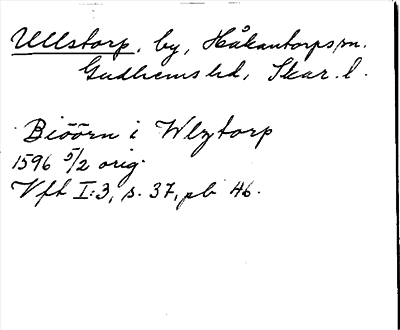 Ullstorp, by, Håkantorps sn.
Gudhems hd, Skar. l.
Biöörn i Wlztorp
1596 5/2 orig.
Vft I:3, s. 37, pb 46.